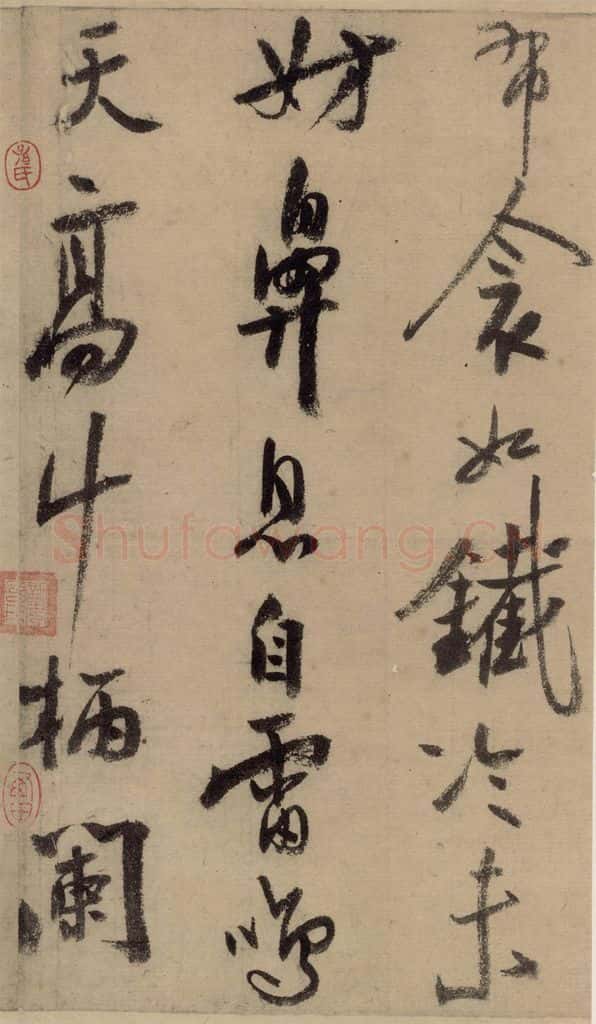 布衾如鐵冷未
妨鼻息自雷鳴
天高斗柄闌
Shufawang.cn